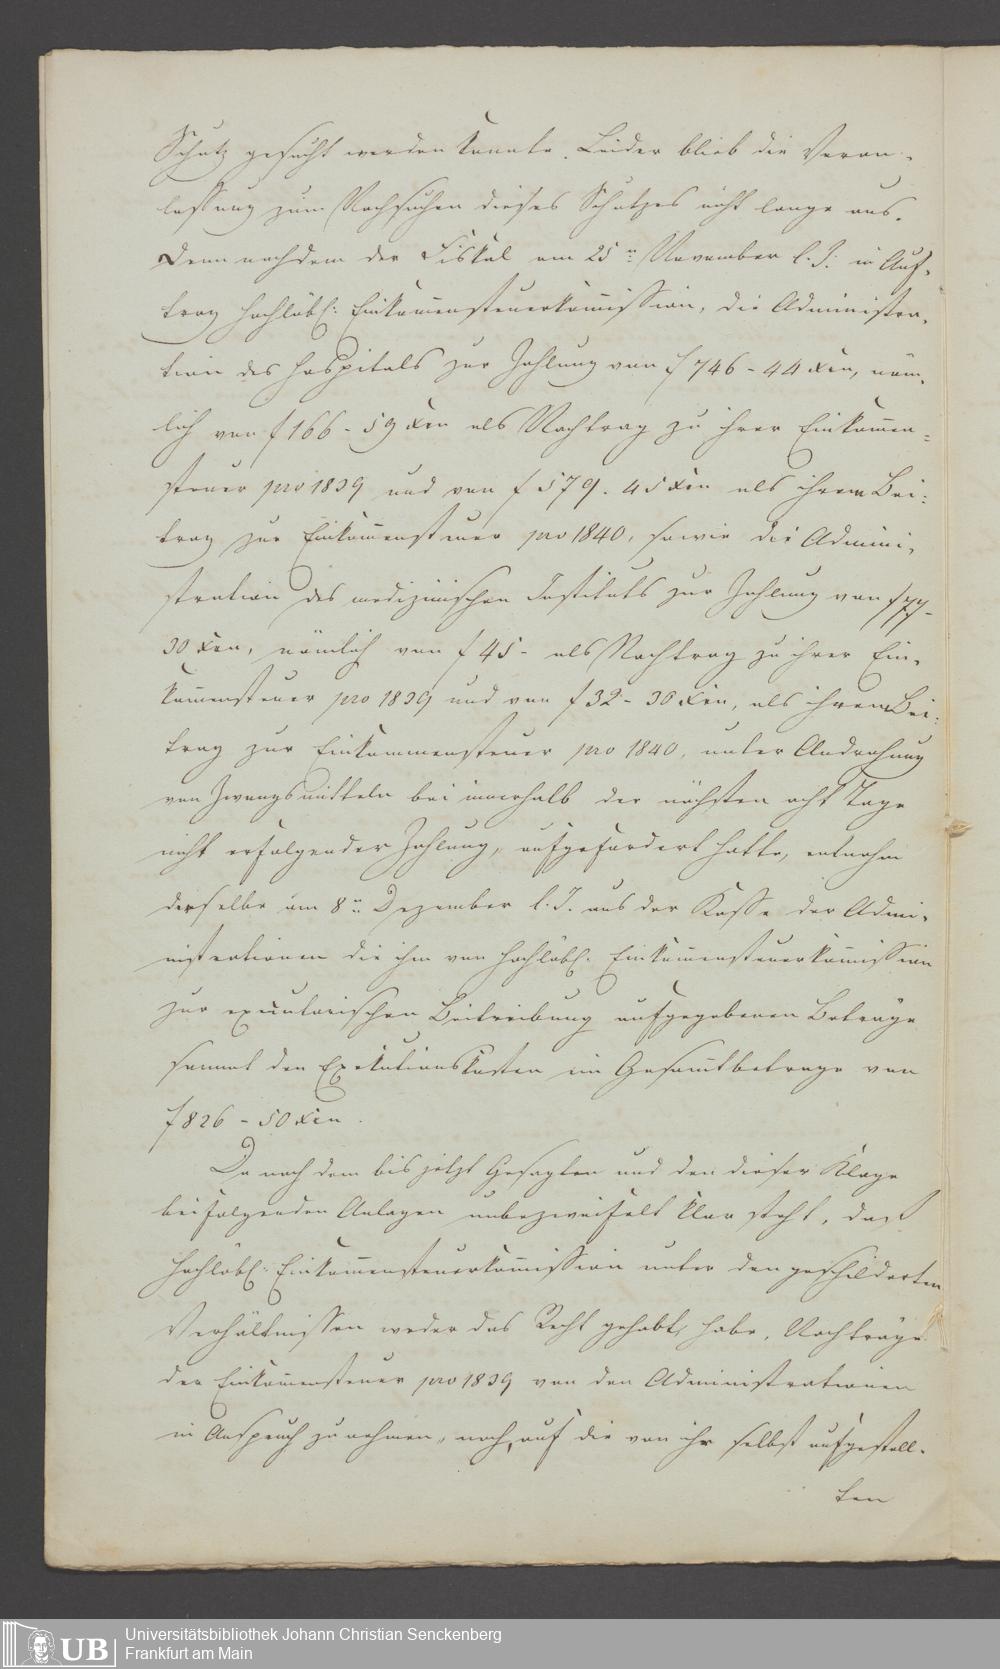 Schutz gesucht werden konnte. Leider blieb die Veran-
lassung zum Nachsuchen dieses Schutzes nicht lange aus.
Denn nachdem der Fiskal am 25n November l. J. in Auf-
trag hochlöbl: Einkom̅ensteuerkom̅ission, die Administra-
tion des Hospitals zur Zahlung von f 746 - 44 Xrn, näm-
lich von f 166 - 59 Xrn als Nachtrag zu ihrer Einkom̅en-
steuer pro 1839 und von f 579. 45 Xrn als ihrem Bei-
trag zur Einkom̅ensteuer pro 1840, sowie die Admini-
stration des medizinischen Instituts zur Zahlung von f 77-
30 Xrn, nämlich von f 45 - als Nachtrag zu ihrer Ein-
kom̅ensteuer pro 1839 und von f 32 - 30 Xrn, als ihrem Bei-
trag zur Einkommensteuer pro 1840, unter Androhung
von Zwangsmitteln bei innerhalb der nächsten acht Tage
nicht erfolgender Zahlung, aufgefordert hatte, entnahm
derselbe am 8n Dezember l. J. aus der Kasse der Admi-
nistrationen die ihm von hochlöbl. Einkom̅ensteuerkom̅ission
zur executorischen Beitreibung aufgegebenen Beträge
sammt den Exekutionskosten im Gesam̅tbetrage von
f 826 - 50 Xrn.
Da nach dem bis jetzt Gesagten und den dieser Klage
beifolgenden Anlagen unbezweifelt klar steht, daß
hochlöbl: Einkom̅ensteuerkom̅ission unter den geschilderten
Verhältnissen weder das Recht gehabt habe, Nachträge
der Einkom̅ensteuer pro 1839 von den Administrationen
in Anspruch zu nehmen, noch, auf die von ihr selbst aufgestell-
ten
Universitätsbibliothek Johann Christian Senckenberg
UB
Frankfurt am Main